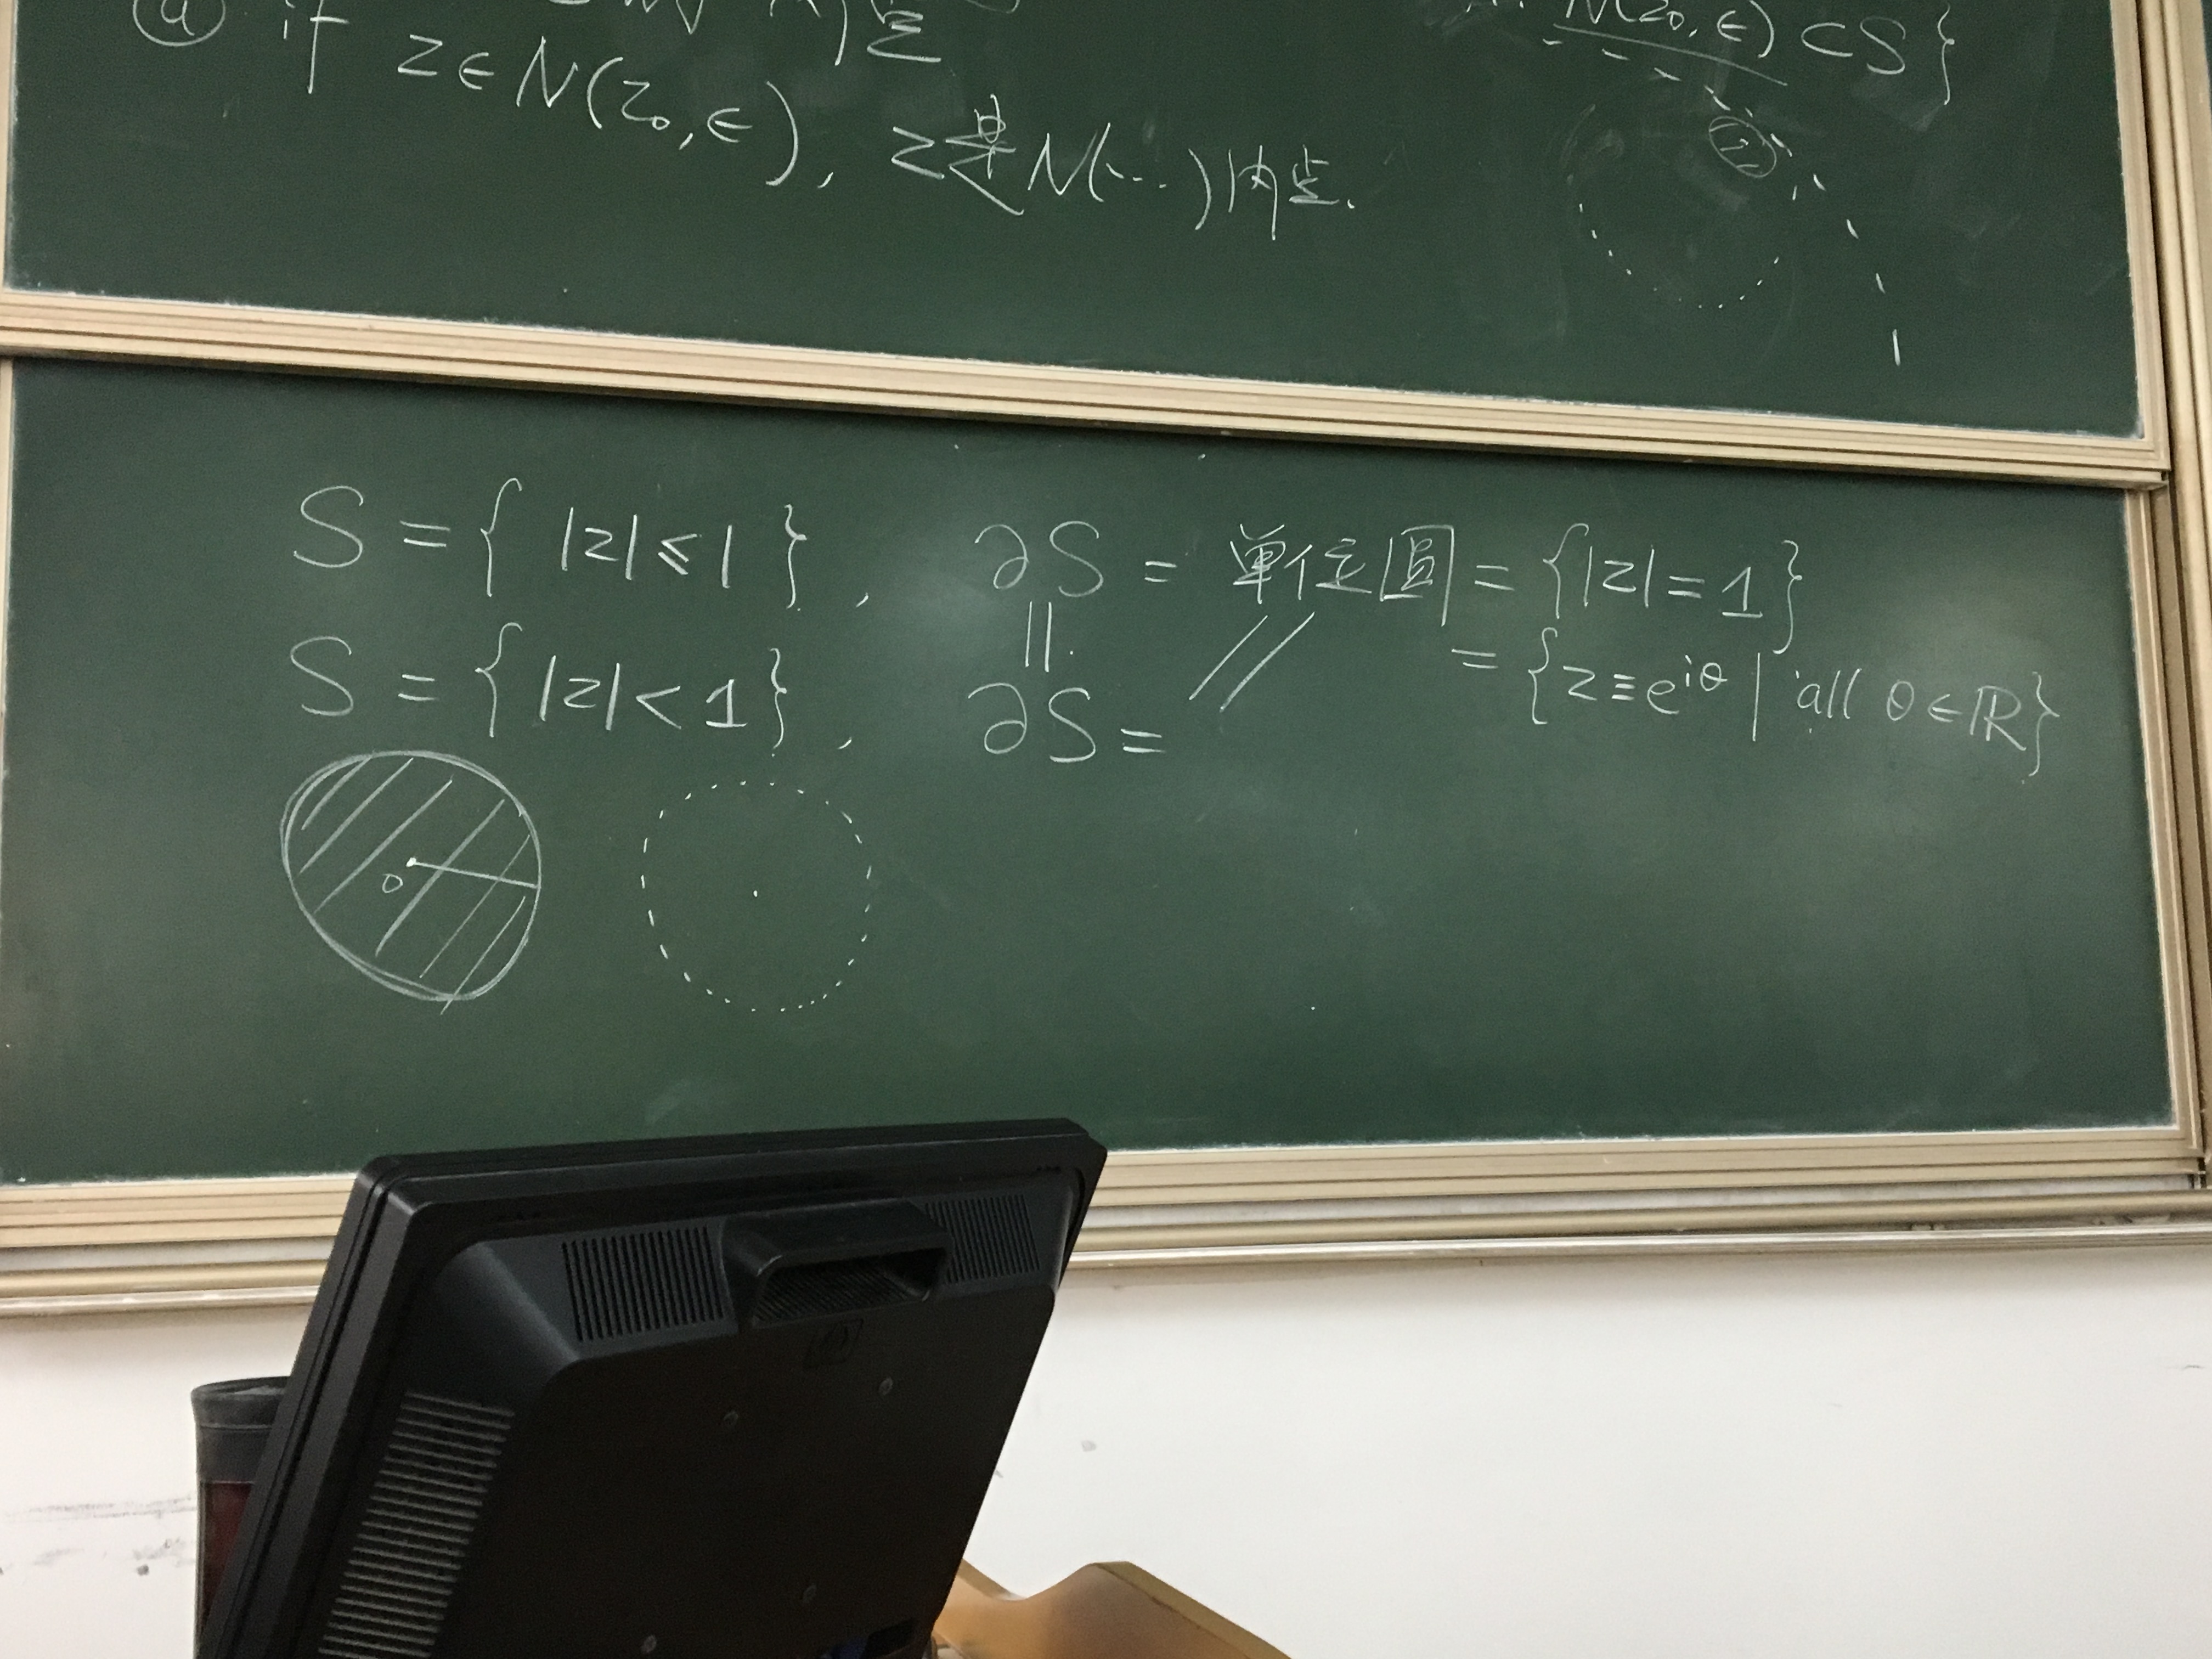 ⓐ if z∈N(z₀,ϵ), z是N(⋯)内点.
N(z₀,ϵ)⊂S}
S={ |z|≤1 }, ∂S = 单位圆 = {|z|=1}
= {z≡e^{iθ} | all θ∈ℝ}
S={ |z|<1 }, ∂S =
0